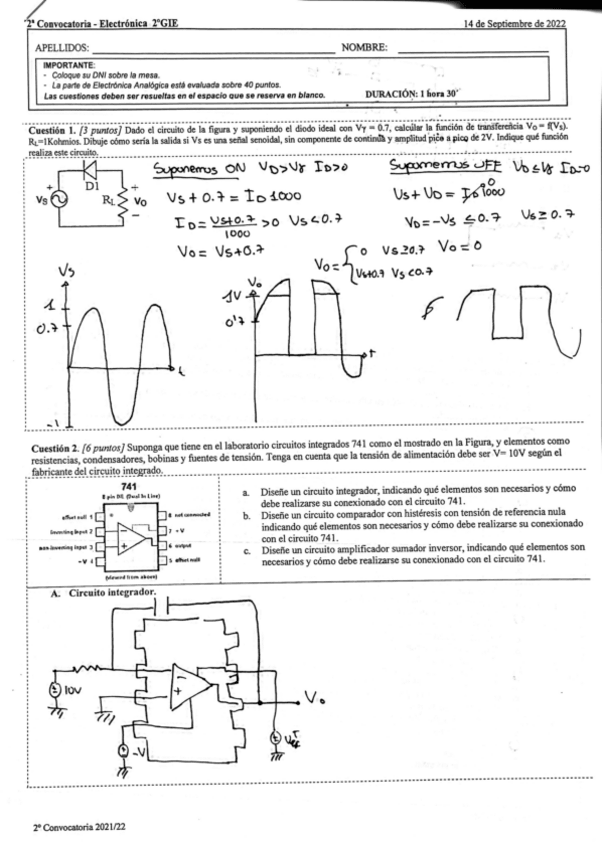 2ª Convocatoria - Electrónica 2ºGIE
14 de Septiembre de 2022
APELLIDOS:
NOMBRE:
IMPORTANTE:
- Coloque su DNI sobre la mesa.
- La parte de Electrónica Analógica está evaluada sobre 40 puntos.
Las cuestiones deben ser resueltas en el espacio que se reserva en blanco.
DURACIÓN: 1 hora 30'
Cuestión 1. [3 puntos] Dado el circuito de la figura y suponiendo el diodo ideal con Vγ = 0.7, calcular la función de transferencia Vo = f(Vs).
RL=1Kohmios. Dibuje cómo sería la salida si Vs es una señal senoidal, sin componente de continua y amplitud pico a pico de 2V. Indique qué función
realiza este circuito.
Suponemos ON VD>Vγ ID>0
Suponemos OFF VD≤Vγ ID=0
D1
Vs
RL
Vo
Vs + 0.7 = ID 1000
ID = Vs+0.7 / 1000 > 0 Vs < 0.7
Vo = Vs+0.7
Vs + VD = ID 1000
0
VD = -Vs ≤ 0.7 Vs ≥ 0.7
Vo = { 0 Vs ≥ 0.7 Vo = 0
Vs+0.7 Vs < 0.7
Vs
1
0.7
-1
t
Vo
1V
0'7
t
Cuestión 2. [6 puntos] Suponga que tiene en el laboratorio circuitos integrados 741 como el mostrado en la Figura, y elementos como
resistencias, condensadores, bobinas y fuentes de tensión. Tenga en cuenta que la tensión de alimentación debe ser V= 10V según el
fabricante del circuito integrado.
741
8 pin DIL (Dual In Line)
offset null 1
8 not connected
inverting input 2
7 +V
non-inverting input 3
6 output
-V 4
5 offset null
(viewed from above)
a. Diseñe un circuito integrador, indicando qué elementos son necesarios y cómo
debe realizarse su conexionado con el circuito 741.
b. Diseñe un circuito comparador con histéresis con tensión de referencia nula
indicando qué elementos son necesarios y cómo debe realizarse su conexionado
con el circuito 741.
c. Diseñe un circuito amplificador sumador inversor, indicando qué elementos son
necesarios y cómo debe realizarse su conexionado con el circuito 741.
A. Circuito integrador.
10V
-V
Vo
2ª Convocatoria 2021/22